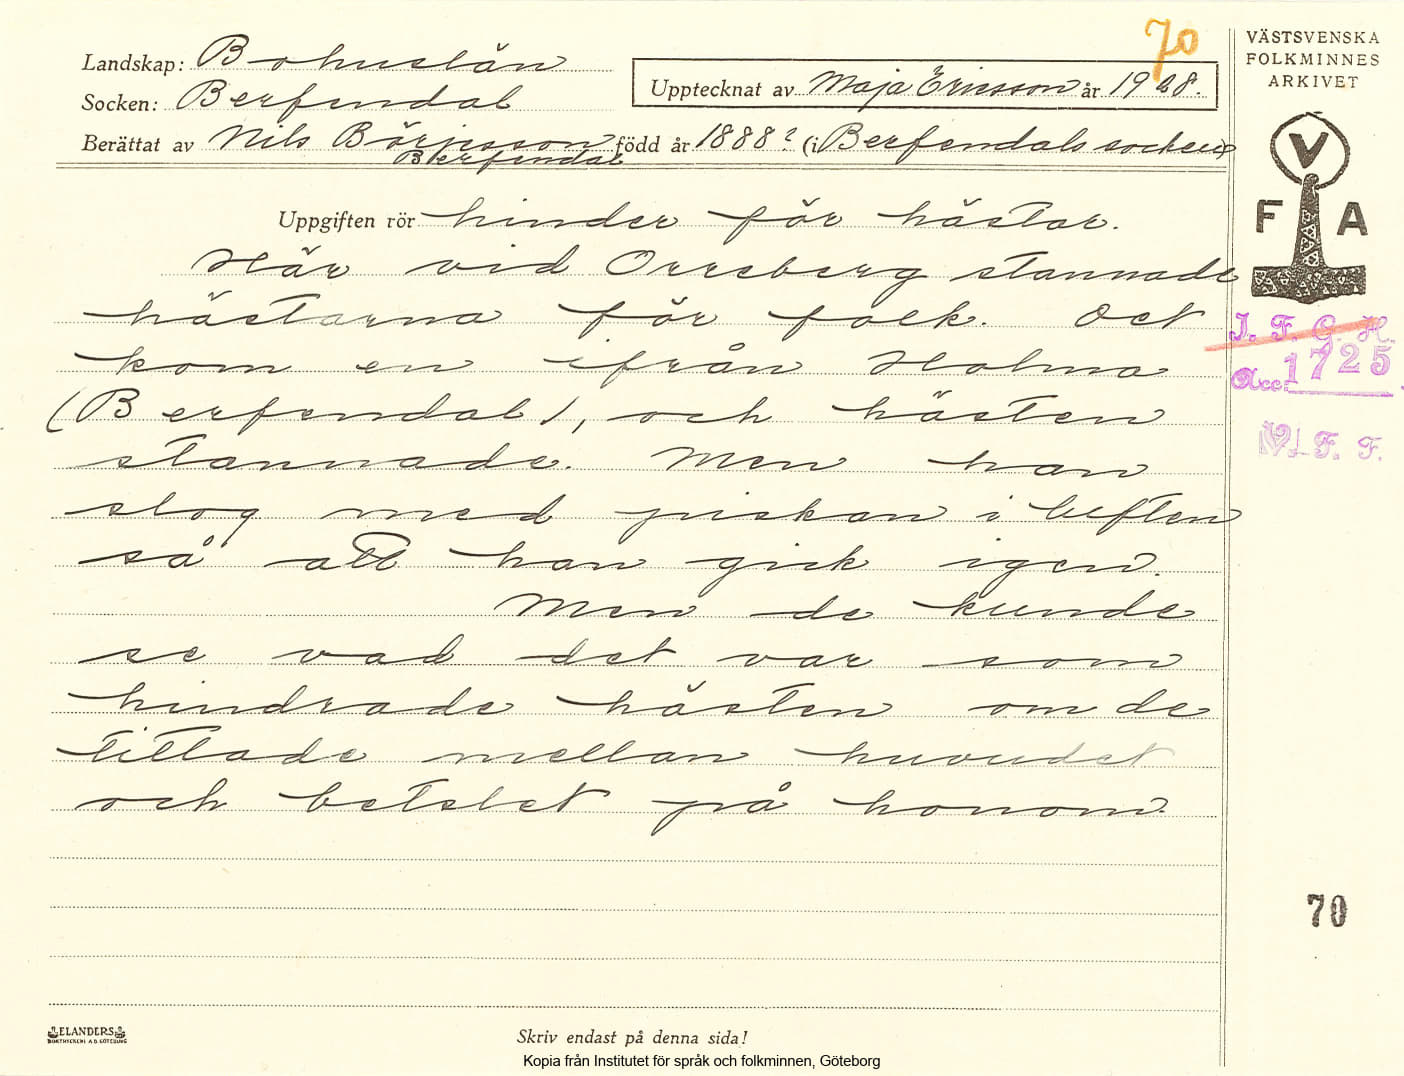 70
VÄSTSVENSKA
FOLKMINNES
ARKIVET
Landskap: Bohuslän
Socken: Berfendal
Upptecknat av Maja Ericsson år 1928.
Berättat av Nils Börjesson född år 1888? (i Berfendals socken)
Berfendal
V
F A
Uppgiften rör hinder för hästar.
Här vid Orreberg stannade
hästarna för folk. Det
kom en ifrån Holma
(Berfendal), och hästen
stannade. Men han
slog med piskan i luften
så att han gick igen.
Men de kunde
se vad det var som
hindrade hästen om de
tittade mellan huvudet
och betslet på honom.
I. F. G. H.
Acc: 1725
V F. F.
70
ELANDERS
BOKTRYCKERI A.B. GÖTEBORG
Skriv endast på denna sida!
Kopia från Institutet för språk och folkminnen, Göteborg